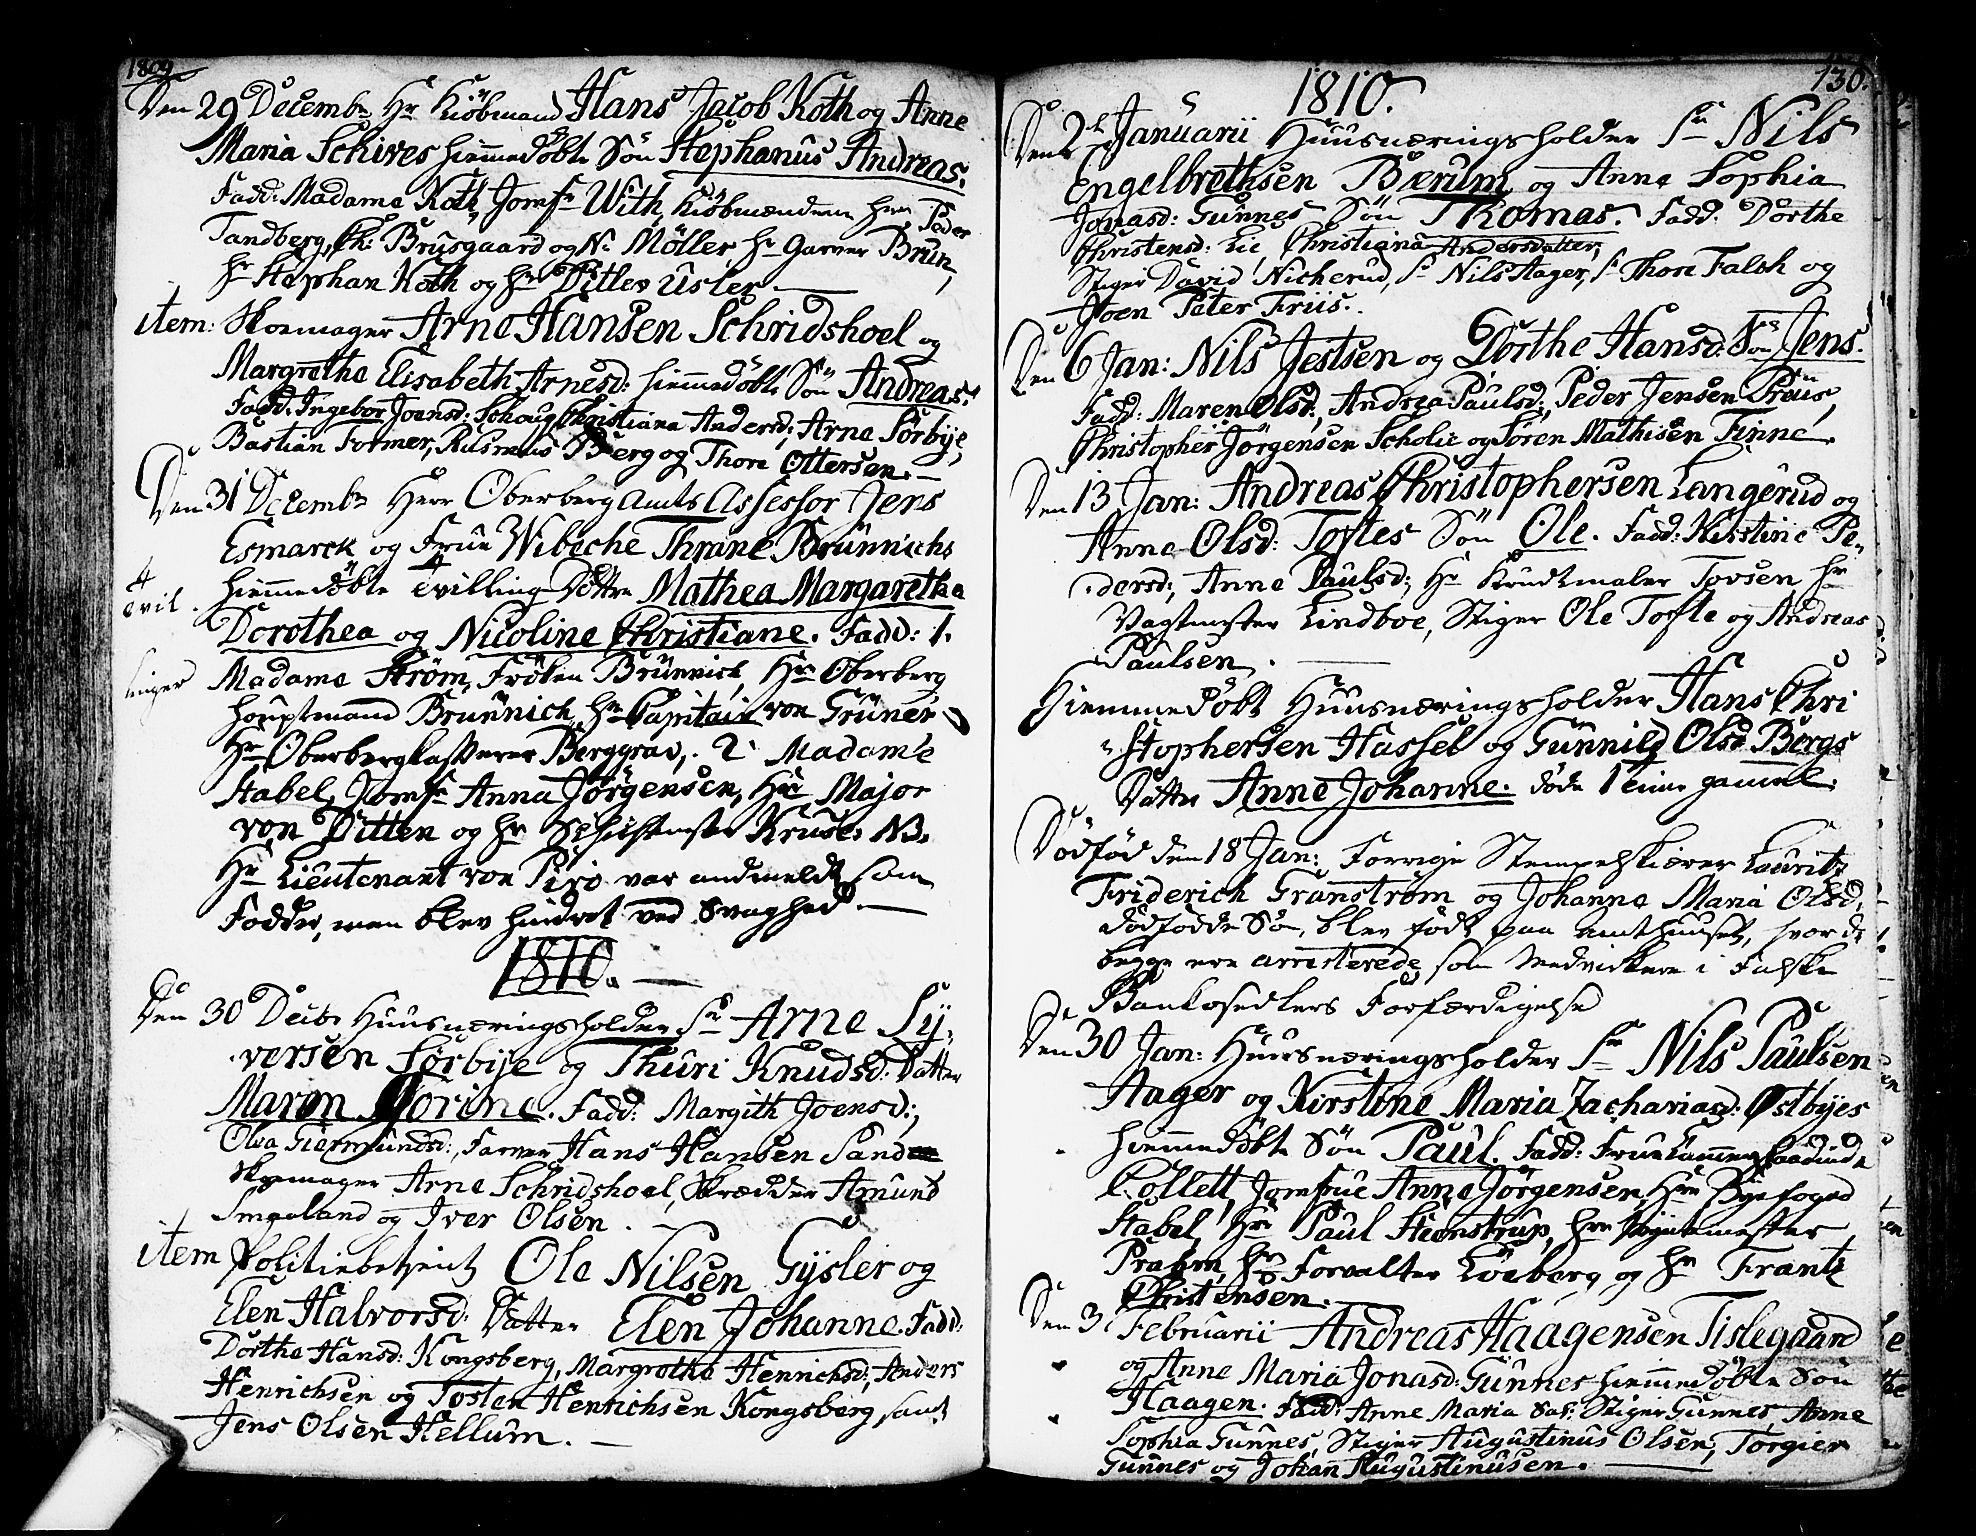 1809
Den 29 Decembr Hr Kiöbmand Hans Jacob Koth og Anne
Maria Schives hiemmedøbte Sön Stephanus Andreas.
Fadd: Madame Koth, Jomfr With, Kiöbmændene Hrr Peder
Tandberg, Ch: Brusgaard og N. Möller, Hr Garver Brun,
Hr Stephan Koth og Hr Ditlev Usler.
item: Skoemager Arne Hansen Schridshoel og
Margrethe Elisabeth Arnesd: hiemmedöbte Sön Andreas.
Fadd. Ingebor Joensd: Schoug, Christiana Andersd:, Arne Sörbye,
Bastian Former, Rasmus Berg og Thore Ottersen.
Den 31 Decembr Herr Oberberg Amts Assessor Jens
Esmarck og Frue Wibeche Thrane Brünnichs
hiemmedöbte Tvilling Döttre Mathea Margaretha
Tvil
Dorothea og Nicoline Christiane. Fadd: 1.
Madame Ström, Frölen Brünnich, Hr Oberberg
linger
Houptmand Brünnich, Hr Capitain von Grüner
Hr Oberbergkasserer Berggrav, 2. Madame
Stabel, Jomfr Anna Jörgensen, Hr Major
von Ditten og Hr Schistmster Kruse. NB.
Hr Lieutenant von Piro var andmeldt som
Fadder, men blev hindret ved Svaghed.
1810.
Den 30 Decbr Huusnæringsholder Sr Arne Sy
versen Sørbye og Thuri Knudsd: Datter
Maren Gorine. Fadd: Margith Joensd:,
Olea Giermundsd:, Farver Hans Hansen Sand
Skoemager Arne Schridshoel, Skrædder Amund
Smaaland og Iver Olsen.
item Politiebetient Ole Nilsen Gysler og
Elen Halvorsd: Datter Elen Johanne. Fadd:
Dorthe Hansd: Kongsberg, Margrethe Henrichsd:, Anders
Henrichsen og Tosten Henrichsen Kongsberg, samt
Jens Olsen Hellum.
1810.
130.
Den 2d Januarii Huusnæringsholder Sr Nils
Engelbrethsen Bærum og Anne Sophia
Jonasd: Gunnes Sön Thomas. Fadd: Dorthe
Christensd: Lie, Christiana Andersdatter,
Stiger David Nicherud, Sr Nils Aager, Sr Thore Falch og
Joen Peter Friis.
Den 6 Jan: Nils Jestsen og Dorthe Hansd: Sön Jens.
Fadd: Maren Olsd:, Andrea Paulsd:, Peder Jensen Preus,
Christopher Jörgensen Scholie og Sören Mathisen Finne.
Den 13 Jan: Andreas Christophersen Langerud og
Anne Olsd: Toftes Sön Ole. Fadd: Kirstine Pe
dersd:, Anne Paulsd:, Hr Krudtmaler Tovsen Hr
Vagtmster Lindboe, Stiger Ole Tofte og Andreas
Paulsen.
Hiemmedöbt Huusnæringsholder Hans Chri
stophersen Hassel og Gunnild Olsd Bergs
Datter Anne Johanne. døde 1 time gammel.
Dödfød den 18 Jan: Forrige Stempelskiærer Lauritz
Friderich Granström og Johanne Maria Olsd,
dödfødde Sön, blev født paa Amthuuset, hvor de
begge ere arresterede som Medvidere i Falske
Bankosedlers Forfærdigelse
Den 30 Jan: Huusnæringsholder Sr Nils Paulsen
Aager og Kirstine Maria Zachariasd: Østbyes
hiemmedöbte Sön Paul. Fadd: Frue Kammerraadinde
Collett, Jomfrue Anne Jörgensen, Hr Byefoged
Stabel, Hr Paul Steenstrup, Hr
Prahm, Hr Forvalter Löeberg og Hr Frantz
Christensen.
Den 3 Februarii Andreas Haagensen Tislegaard
og Anne Maria Jonasd: Gunnes hiemmedöbte Sön
Haagen. Fadd: Anne Maria Sal: Stiger Gunnes, Anne
Sophia Gunnes, Stiger Augustinus Olsen, Torgier
Gunnes og Johan Augustinusen.